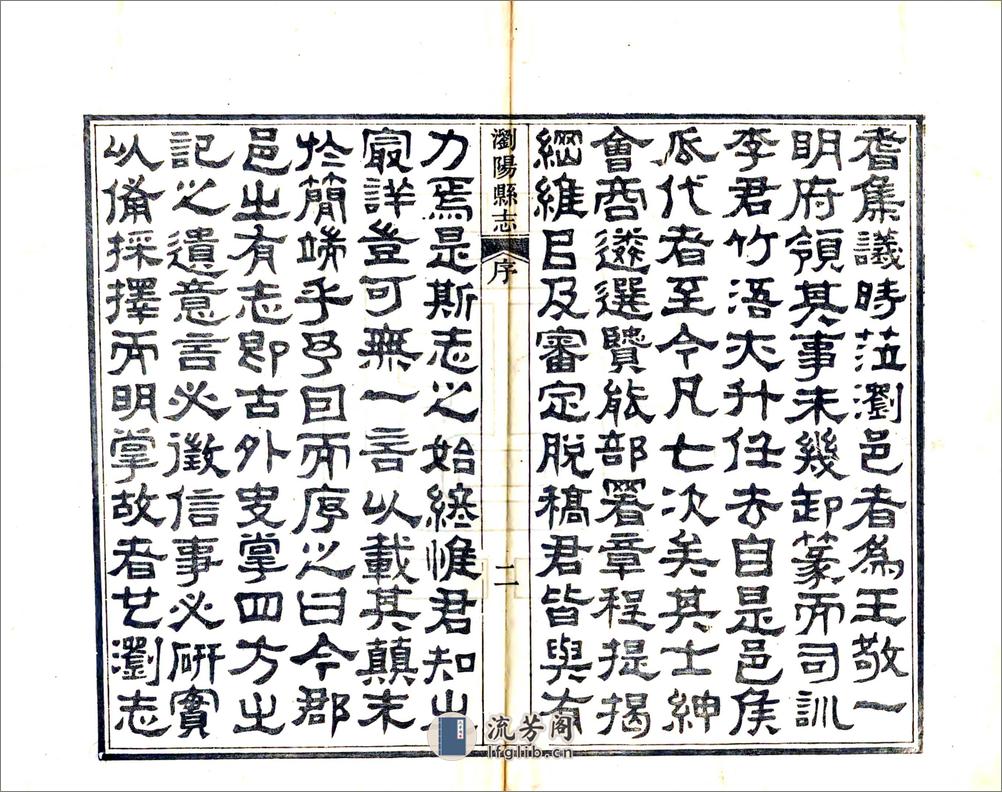 耆集議時蒞瀏邑者為王敬一
明府領其事未幾卸篆而司訓
李君竹浯亦升任去自是邑侯
瓜代者至今凡七次矣其士紳
會商遴選賢能部署章程提揭
綱維㠯及審定脫稿君皆與有
瀏陽縣志 序 二
力焉是斯志之始終惟君知之
最詳豈可無一言以載其顛末
於簡端乎予因而序之曰今郡
邑之有志即古外史掌四方之
記之遺意言必徵信事必研實
以備採擇而明掌故者也瀏志
流芳阁
lfglib.cn